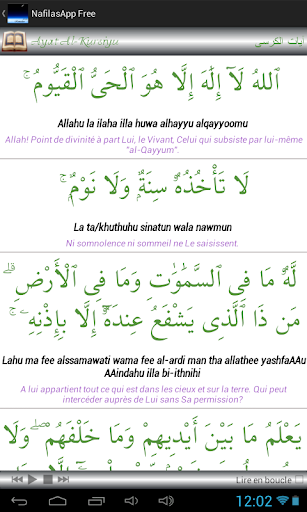 NafilasApp Free
Ayat Al-Kursiyu
آيات الكرسي
ٱللهُ لَآ إِلَٰهَ إِلَّا هُوَ ٱلْحَىُّ ٱلْقَيُّومُ ۚ
Allahu la ilaha illa huwa alhayyu alqayyoomu
Allah! Point de divinité à part Lui, le Vivant, Celui qui subsiste par lui-même
"al-Qayyum".
لَا تَأْخُذُهُۥ سِنَةٌ وَلَا نَوْمٌ ۚ
La ta/khuthuhu sinatun wala nawmun
Ni somnolence ni sommeil ne Le saisissent.
لَّهُۥ مَا فِى ٱلسَّمَٰوَٰتِ وَمَا فِى ٱلْأَرْضِ ۗ
مَن ذَا ٱلَّذِى يَشْفَعُ عِندَهُۥٓ إِلَّا بِإِذْنِهِۦ ۚ
Lahu ma fee alssamawati wama fee al-ardi man tha allathee yashfaAAu
AAindahu illa bi-ithnihi
A lui appartient tout ce qui est dans les cieux et sur la terre. Qui peut
intercéder auprès de Lui sans Sa permission?
يَعْلَمُ مَا بَيْنَ أَيْدِيهِمْ وَمَا خَلْفَهُمْ ۖ وَلَا
Lire en boucle
12:02